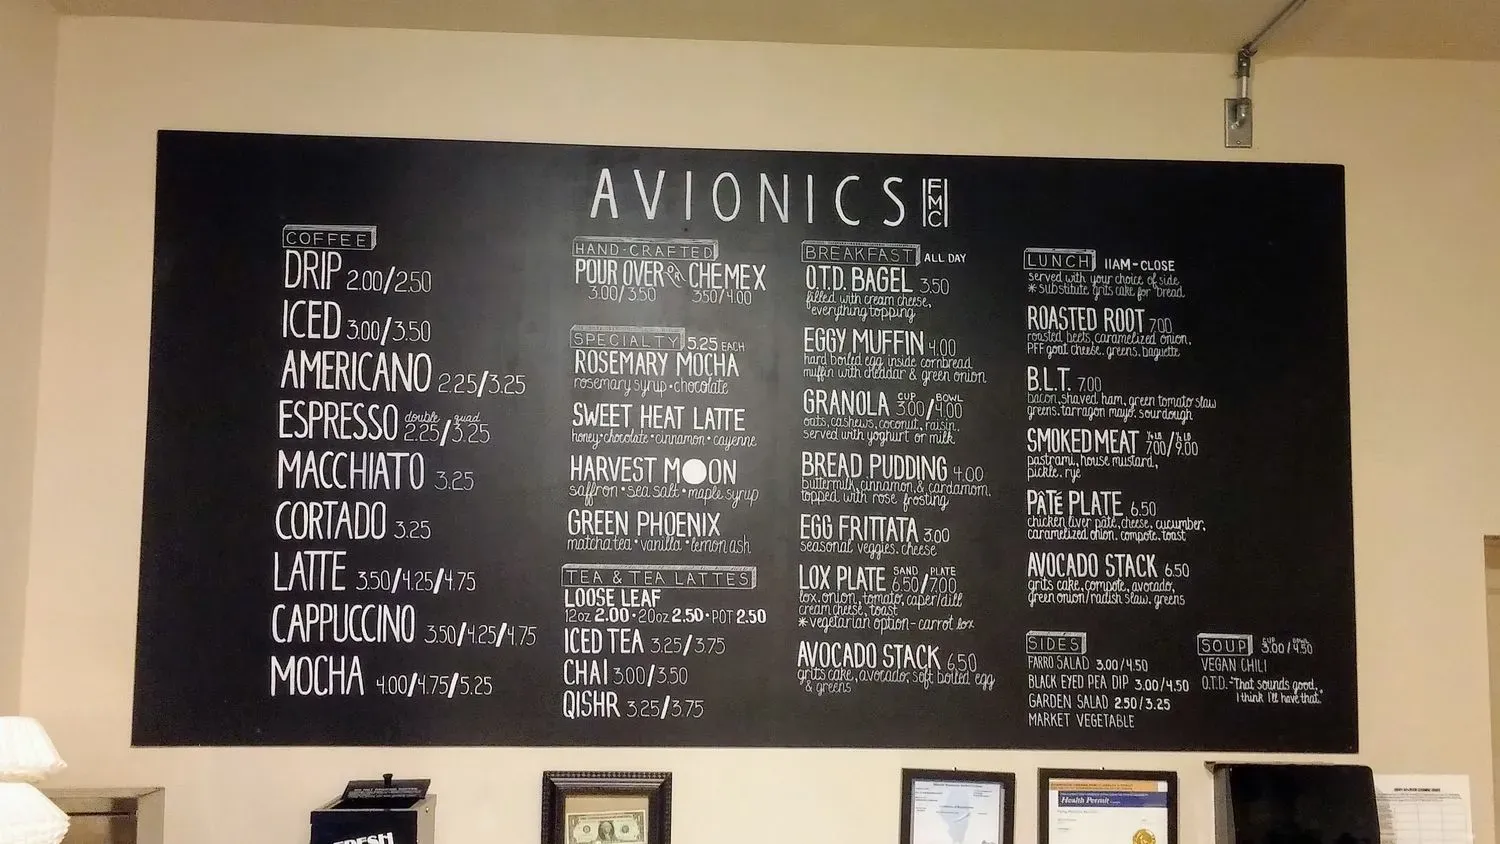 AVIONICS FMC
COFFEE
DRIP 2.00/2.50
ICED 3.00/3.50
AMERICANO 2.25/3.25
double quad
ESPRESSO 2.25/3.25
MACCHIATO 3.25
CORTADO 3.25
LATTE 3.50/4.25/4.75
CAPPUCCINO 3.50/4.25/4.75
MOCHA 4.00/4.75/5.25
HAND-CRAFTED
POUR OVER or CHEMEX
3.00/3.50 3.50/4.00
SPECIALTY 5.25 EACH
ROSEMARY MOCHA
rosemary syrup • chocolate
SWEET HEAT LATTE
honey • chocolate • cinnamon • cayenne
HARVEST MOON
saffron • sea salt • maple syrup
GREEN PHOENIX
matcha tea • vanilla • lemon ash
TEA & TEA LATTES
LOOSE LEAF
12oz 2.00 • 20oz 2.50 • POT 2.50
ICED TEA 3.25/3.75
CHAI 3.00/3.50
QISHR 3.25/3.75
BREAKFAST ALL DAY
O.T.D. BAGEL 3.50
filled with cream cheese,
everything topping
EGGY MUFFIN 4.00
hard boiled egg inside cornbread
muffin with cheddar & green onion
CUP BOWL
GRANOLA 3.00/4.00
oats, cashews, coconut, raisin.
served with yoghurt or milk
BREAD PUDDING 4.00
buttermilk, cinnamon, & cardamom,
topped with rose frosting
EGG FRITTATA 3.00
seasonal veggies, cheese
SAND PLATE
LOX PLATE 6.50/7.00
lox, onion, tomato, caper/dill
cream cheese, toast
* vegetarian option - carrot lox
AVOCADO STACK 6.50
grits cake, avocado, soft boiled egg
& greens
LUNCH 11AM-CLOSE
served with your choice of side
* substitute grits cake for bread
ROASTED ROOT 7.00
roasted beets, caramelized onion,
PFF goat cheese, greens, baguette
B.L.T. 7.00
bacon, shaved ham, green tomato slaw
greens, tarragon mayo, sourdough
¼ LB ½ LB
SMOKED MEAT 7.00/9.00
pastrami, house mustard,
pickle, rye
PÂTÉ PLATE 6.50
chicken liver pâté, cheese, cucumber,
caramelized onion, compote, toast
AVOCADO STACK 6.50
grits cake, compote, avocado,
green onion/radish slaw, greens
SIDES
FARRO SALAD 3.00/4.50
BLACK EYED PEA DIP 3.00/4.50
GARDEN SALAD 2.50/3.25
MARKET VEGETABLE
CUP BOWL
SOUP 3.00/4.50
VEGAN CHILI
O.T.D. - "That sounds good,
I think I'll have that."
FRESH
Health Permit